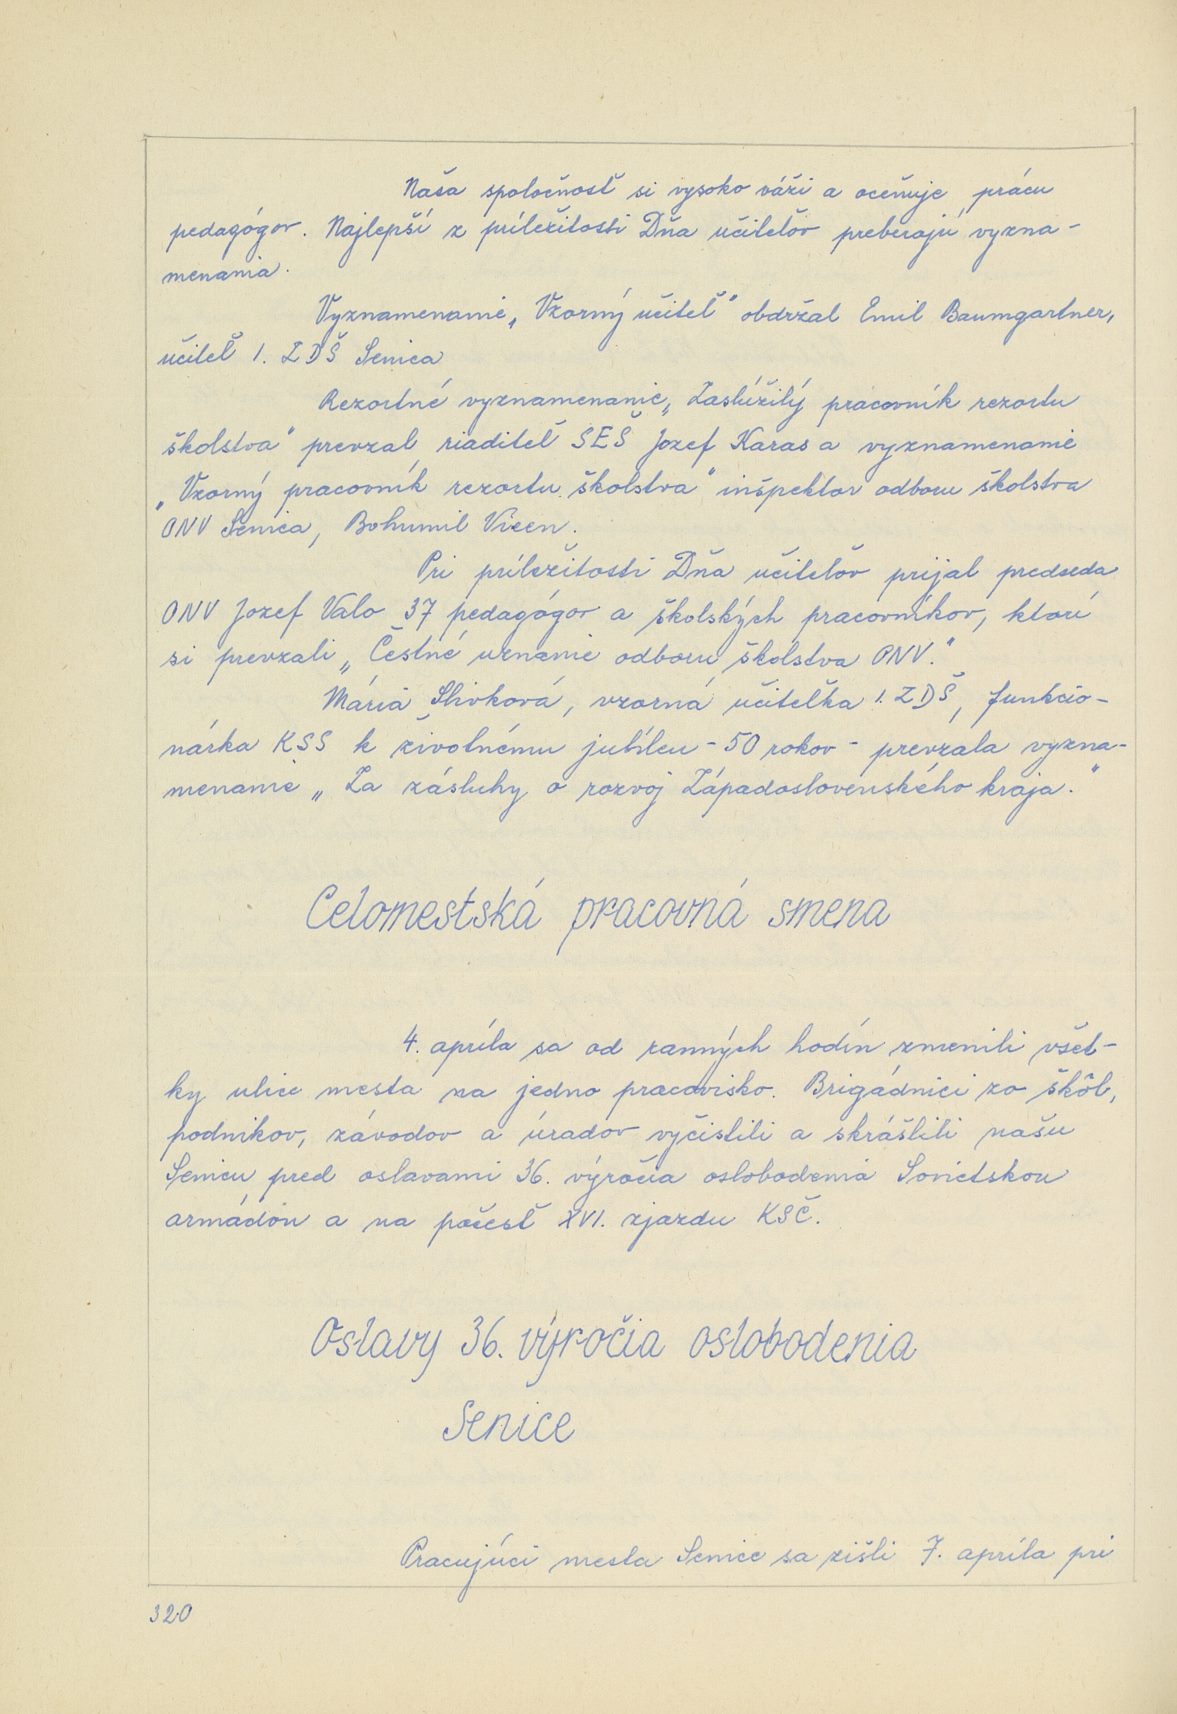 Naša spoločnosť si vysoko váži a oceňuje prácu
pedagógov. Najlepší z príležitosti Dňa učiteľov preberajú vyzna-
menania.
Vyznamenanie „Vzorný učiteľ" obdržal Emil Baumgartner,
učiteľ 1. ZDŠ Senica
Rezortné vyznamenanie „Zaslúžilý pracovník rezortu
školstva" prevzal riaditeľ SEŠ Jozef Karas a vyznamenanie
„Vzorný pracovník rezortu školstva" inšpektor odboru školstva
ONV Senica, Bohumil Vicen.
Pri príležitosti Dňa učiteľov prijal predseda
ONV Jozef Valo 37 pedagógov a školských pracovníkov, ktorí
si prevzali „Čestné uznanie odboru školstva ONV."
Mária Slivková, vzorná učiteľka 1. ZDŠ, funkcio-
nárka KSS k životnému jubileu - 50 rokov - prevzala vyzna-
menanie „Za zásluhy o rozvoj Západoslovenského kraja."
Celomestská pracovná smena
4. apríla sa od ranných hodín zmenili všet-
ky ulice mesta na jedno pracovisko. Brigádnici zo škôl,
podnikov, závodov a úradov vyčistili a skrášlili našu
Senicu pred oslavami 36. výročia oslobodenia Sovietskou
armádou a na počesť XVI. zjazdu KSČ.
Oslavy 36. výročia oslobodenia
Senice
Pracujúci mesta Senice sa zišli 7. apríla pri
320